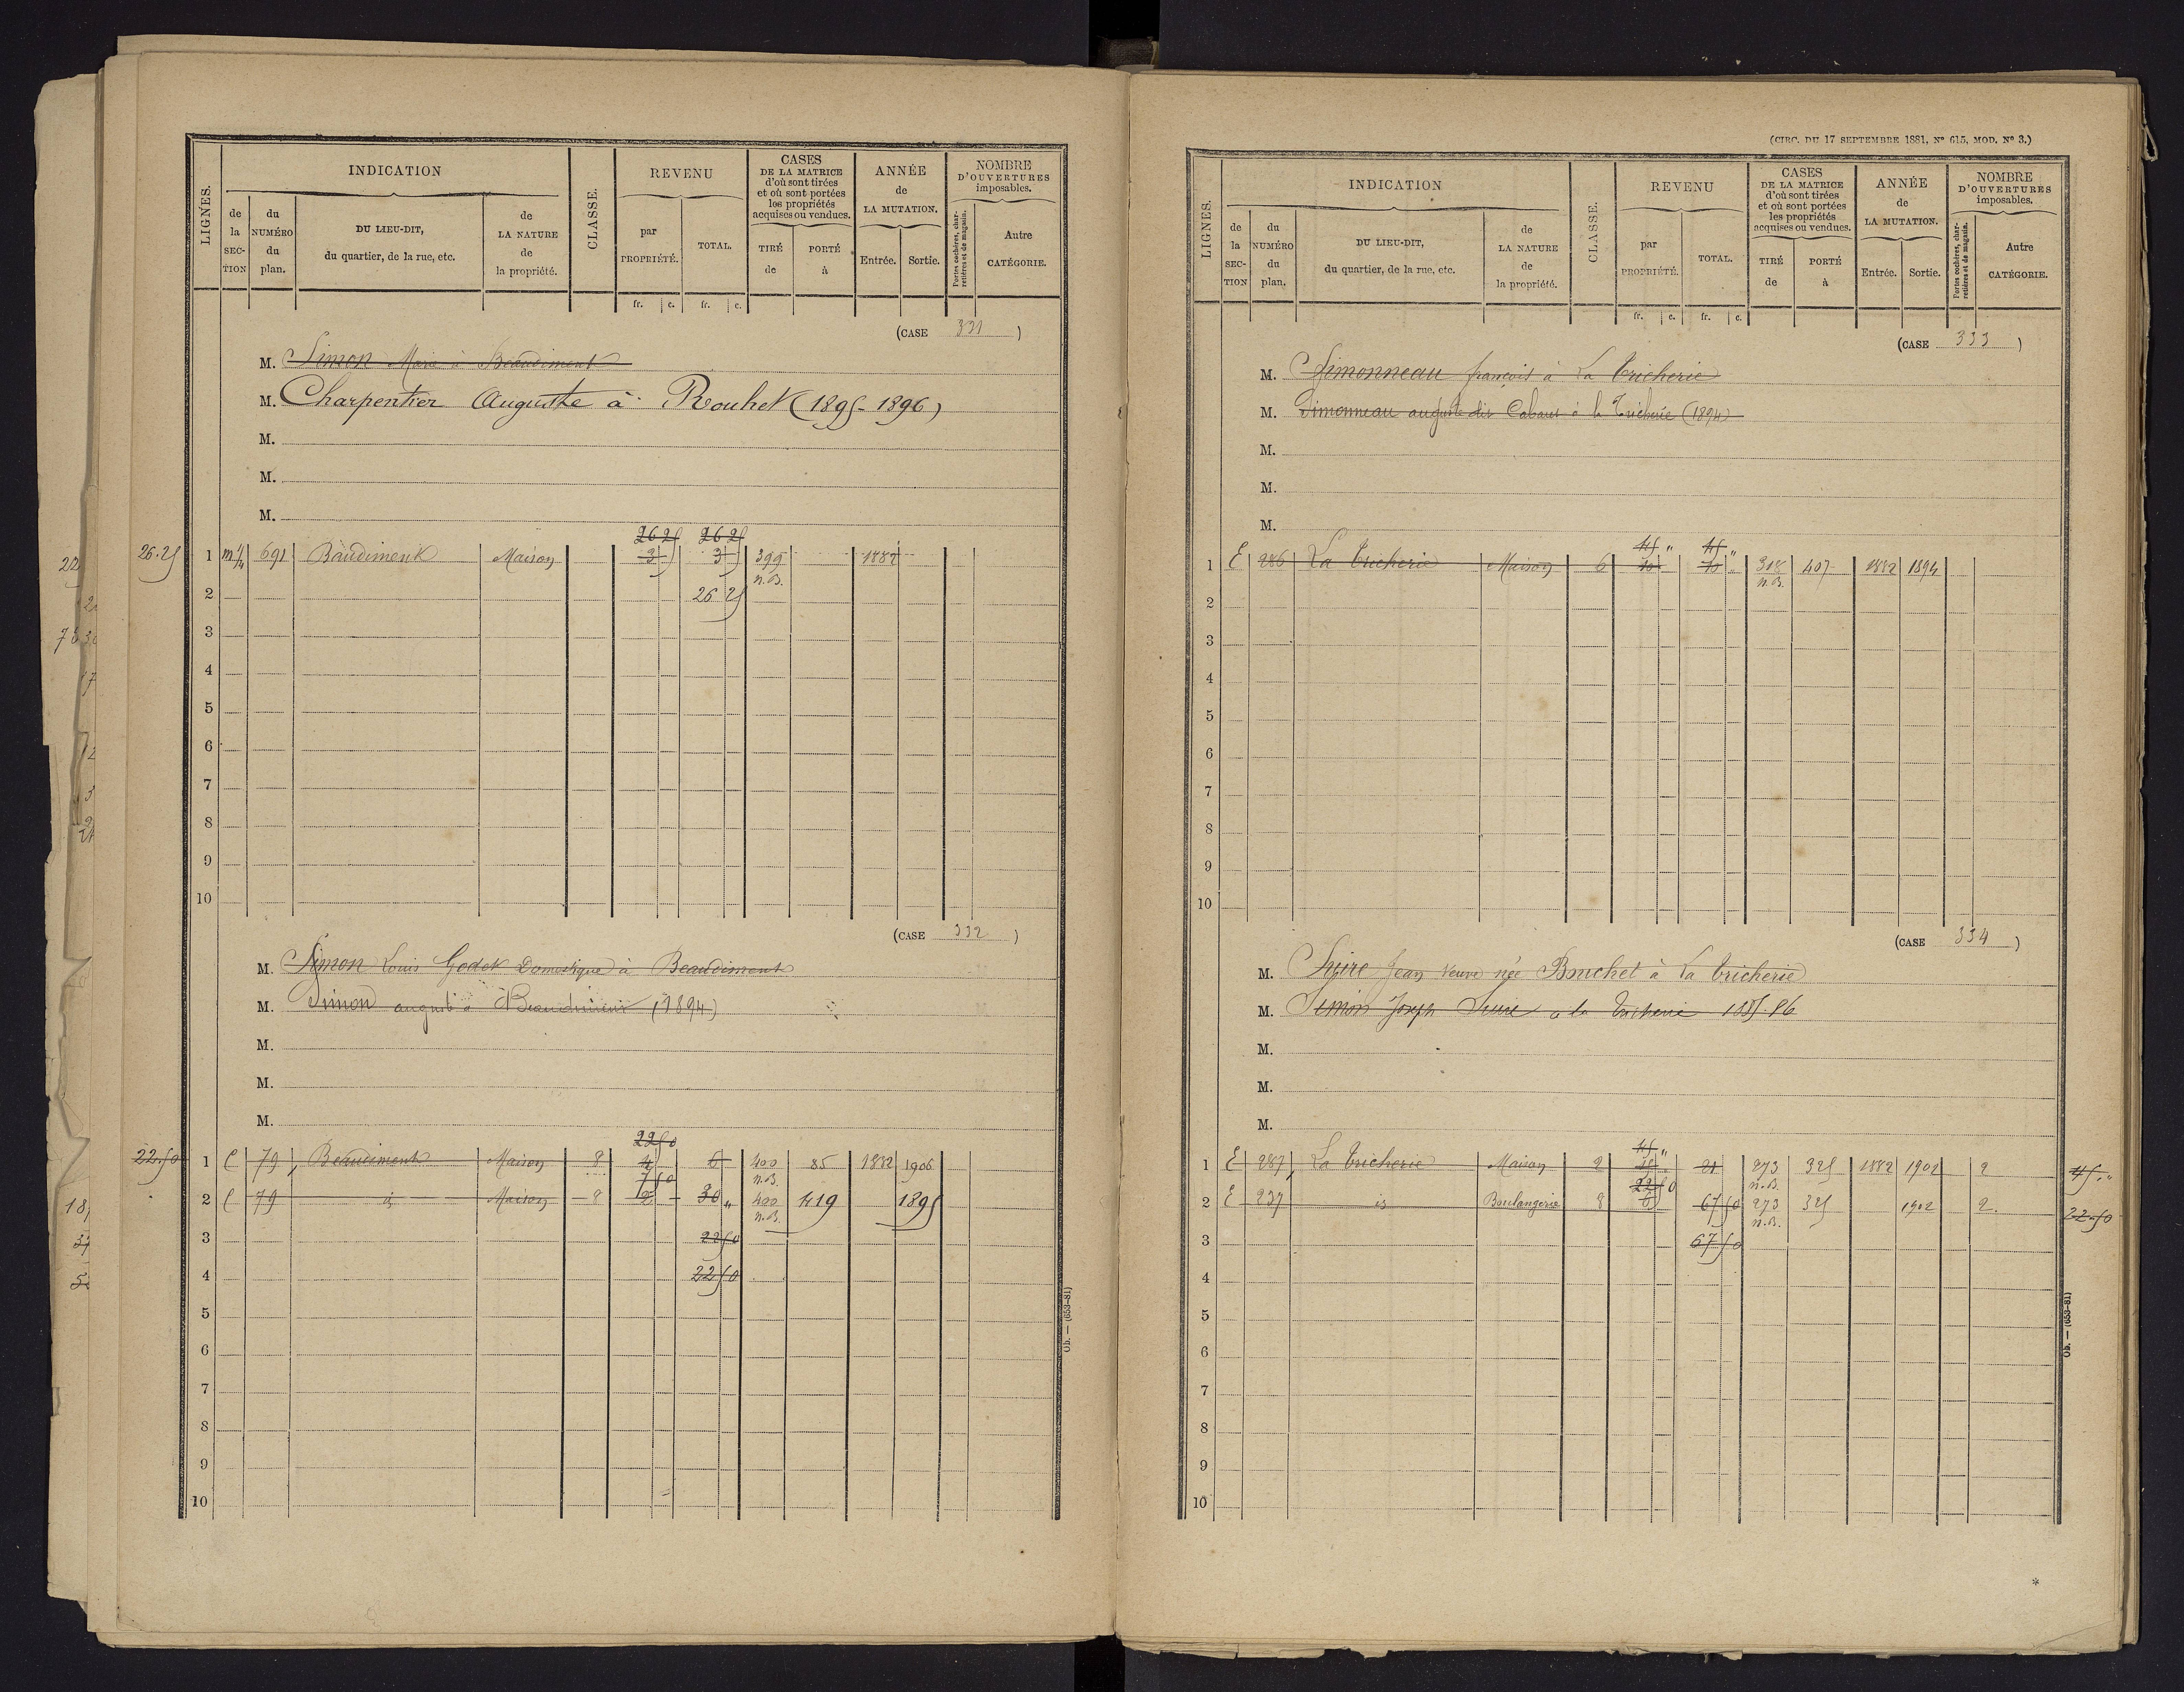 LIGNES.
INDICATION
de la SECTION
du NUMÉRO du plan.
DU LIEU-DIT, du quartier, de la rue, etc.
de LA NATURE de la propriété.
CLASSE.
REVENU
par PROPRIÉTÉ.
TOTAL.
CASES DE LA MATRICE d'où sont tirées et où sont portées les propriétés acquises ou vendues.
TIRÉ de
PORTÉ à
ANNÉE de LA MUTATION.
Entrée. Sortie.
NOMBRE D'OUVERTURES imposables.
Portes cochères, charretières et de magasin.
Autre CATÉGORIE.
fr. c. fr. c.
(CASE 331)
M. Simon Marie à Beaudiment
M. Charpentier Auguste à Rouhet (1895-1896)
M.
M.
M.
26 25 26 25
26.25 1 691 Baudiment Maison 3 3 399 1882
n.B.
2 26 25
3
4
5
6
7
8
9
10
(CASE 332)
M. Simon Louis Godet Domestique à Beaudiment
M. Simon auguste à Beaudiment (1894)
M.
M.
M.
22 50
22.50 1 C 79 Beaudiment Maison 8 4 6 400 85 1882 1906
7 50 n.B.
2 C 79 id Maison 8 2 30 " 400 419 1895
n.B.
3 22 50
4 22 50
5
6
7
8
9
10
Ob. — (653-81)
(CIRC. DU 17 SEPTEMBRE 1881, N° 615, MOD. N° 3.)
LIGNES.
INDICATION
de la SECTION
du NUMÉRO du plan.
DU LIEU-DIT, du quartier, de la rue, etc.
de LA NATURE de la propriété.
CLASSE.
REVENU
par PROPRIÉTÉ.
TOTAL.
CASES DE LA MATRICE d'où sont tirées et où sont portées les propriétés acquises ou vendues.
TIRÉ de
PORTÉ à
ANNÉE de LA MUTATION.
Entrée. Sortie.
NOMBRE D'OUVERTURES imposables.
Portes cochères, charretières et de magasin.
Autre CATÉGORIE.
fr. c. fr. c.
(CASE 333)
M. Simonneau françois à La Tricherie
M. Simonneau auguste dit Cabaret à la Tricherie (1894)
M.
M.
M.
45 " 45 "
1 E 286 La Tricherie Maison 6 10 10 318 407 1882 1894
n.B.
2
3
4
5
6
7
8
9
10
(CASE 334)
M. Suire Jean veuve née Bouchet à La Tricherie
M. Simon Joseph Suire à la Tricherie 1885.86
M.
M.
M.
45 "
1 E 287 La Tricherie Maison 2 15 21 273 325 1882 1902 2 45."
22 50 n.B.
2 E 237 id Boulangerie 8 6 67 50 273 325 1902 2. 22.50
n.B.
3 67 50
4
5
6
7
8
9
10
Ob. — (653-81)
*